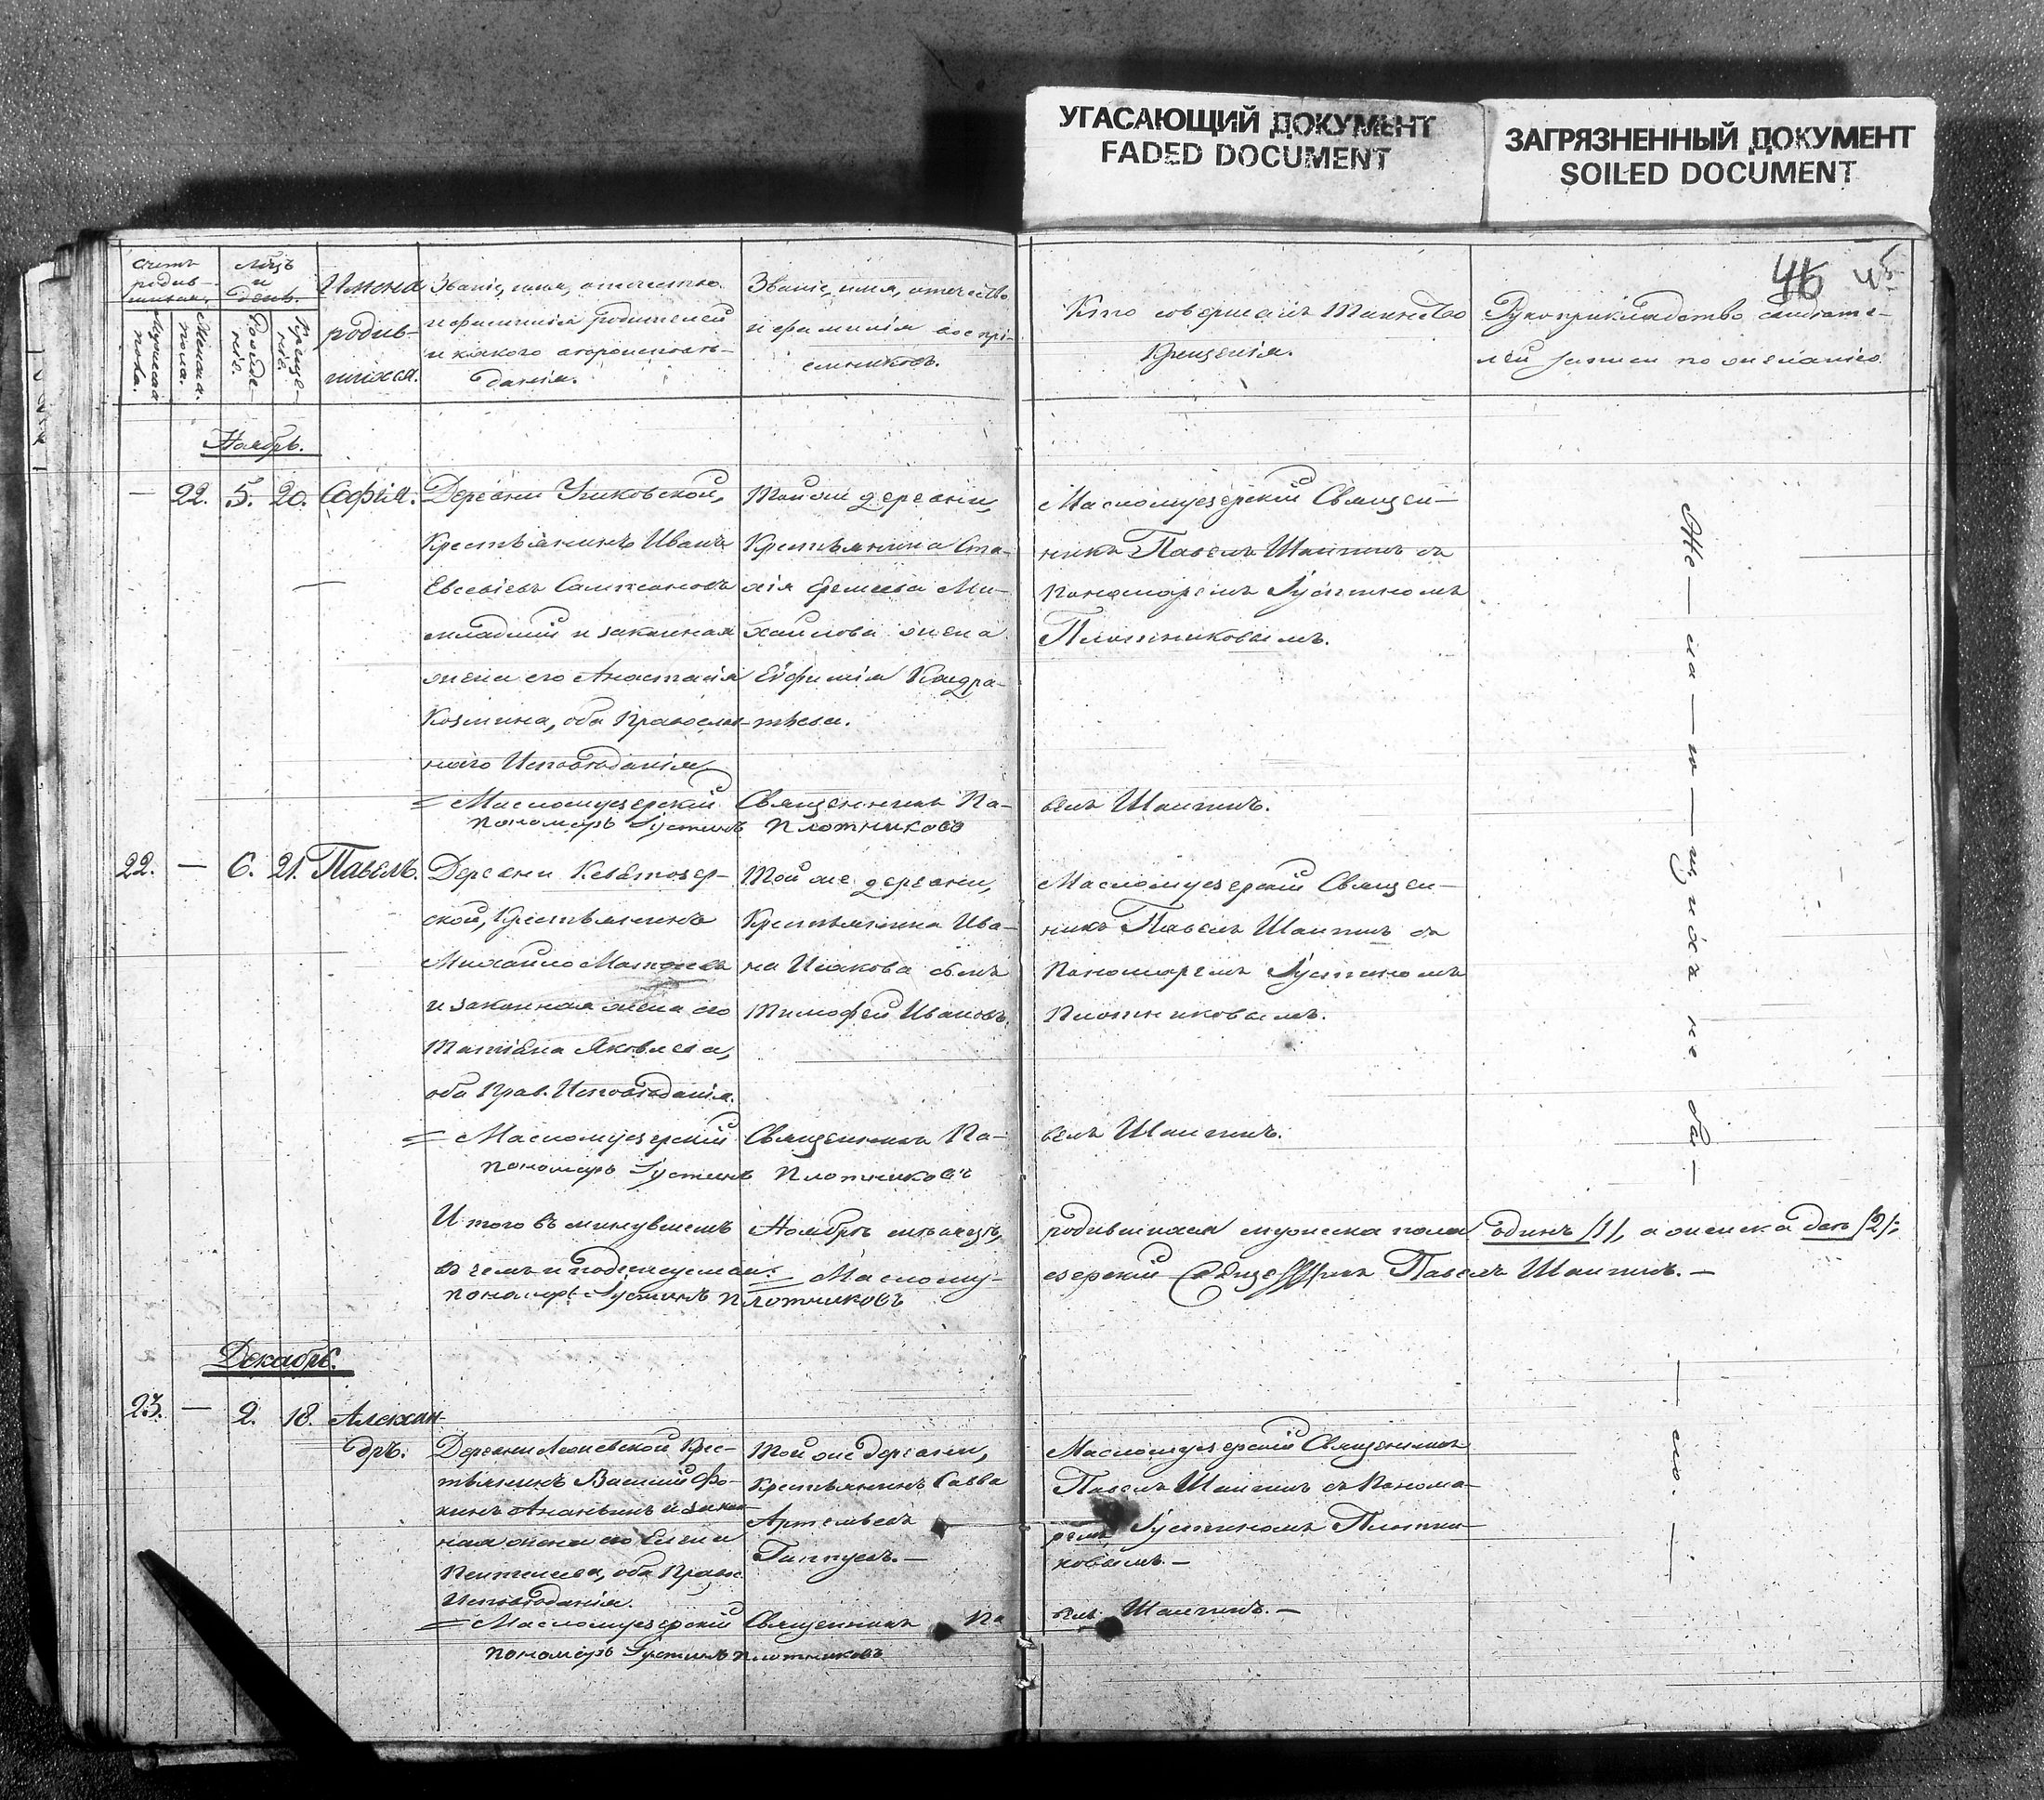 УГАСАЮЩИЙ ДОКУМЕНТ
FADED DOCUMENT
ЗАГРЯЗНЕННЫЙ ДОКУМЕНТ
SOILED DOCUMENT
46
Счетъ
родив-
шихся.
Мужеска
пола.
Женска
пола.
Мѣсяцъ
и
день.
Рожде-
нiе.
Креще-
нiе.
Имена
родив-
шихся.
Званiе, имя, отчество
и фамилiя родителей
и какого вѣроисповѣ-
данiя.
Званiе, имя, отчество
и фамилiя воспрi-
емниковъ.
Кто совершалъ таинство
Крещенiя.
Рукоприкладство свидѣте-
лей записи по желанiю.
Ноябрь.
— 22. 5. 20. Софiя.
Деревни
Крестьянинъ Иванъ
Евсевiевъ
младшiй и законная
жена его Анастасiя
Козмина, оба Православ-
наго Исповѣданiя
Той же деревни,
Крестьянина
Ми-
хайлова жена
Евфимiя Кондра-
тьева.
Масломуезерскiй Священ-
никъ Павелъ Шаитинъ съ
Пономаремъ Iустиномъ
Плотниковымъ.
= Масломуезерскiй Священникъ Па-
велъ Шаитинъ.
Пономарь Iустинъ Плотниковъ
22. — 6. 21. Павелъ.
Деревни Кевятозер-
ской, Крестьянинъ
Михайло Матѳеевъ
и законная жена его
Татiана Яковлева,
оба Прав. Исповѣданiя.
Той же деревни,
Крестьянина Ива-
на Исакова сынъ
Тимофей Ивановъ.
Масломуезерскiй Священ-
никъ Павелъ Шаитинъ съ
Пономаремъ Iустиномъ
Плотниковымъ.
= Масломуезерскiй Священникъ Па-
велъ Шаитинъ.
Пономарь Iустинъ Плотниковъ
Итого въ минувшемъ Ноябрѣ мѣсяцѣ, родившихся мужеска пола одинъ /1/, а женска двѣ /2/;
въ чемъ и подписуемся: = Маслому-
езерскiй Священникъ Павелъ Шаитинъ. —
Пономарь Iустинъ Плотниковъ
Же — ла — ю — щихъ не бы —
Декабрь.
23. — 2. 18. Алексан-
дръ.
Деревни Крес-
тьянинъ Василiй Фо-
кинъ Ананьинъ и закон-
ная жена его Елена
Пантелеева, оба Правос.
Исповѣданiя.
Той же деревни,
Крестьянинъ Савва
Артемьевъ
Масломуезерскiй Священникъ
Павелъ Шаитинъ съ Понома-
ремъ Iустиномъ Плотни-
ковымъ. —
= Масломуезерскiй Священникъ Па
велъ Шаитинъ. —
Пономарь Iустинъ Плотниковъ
— ло. —